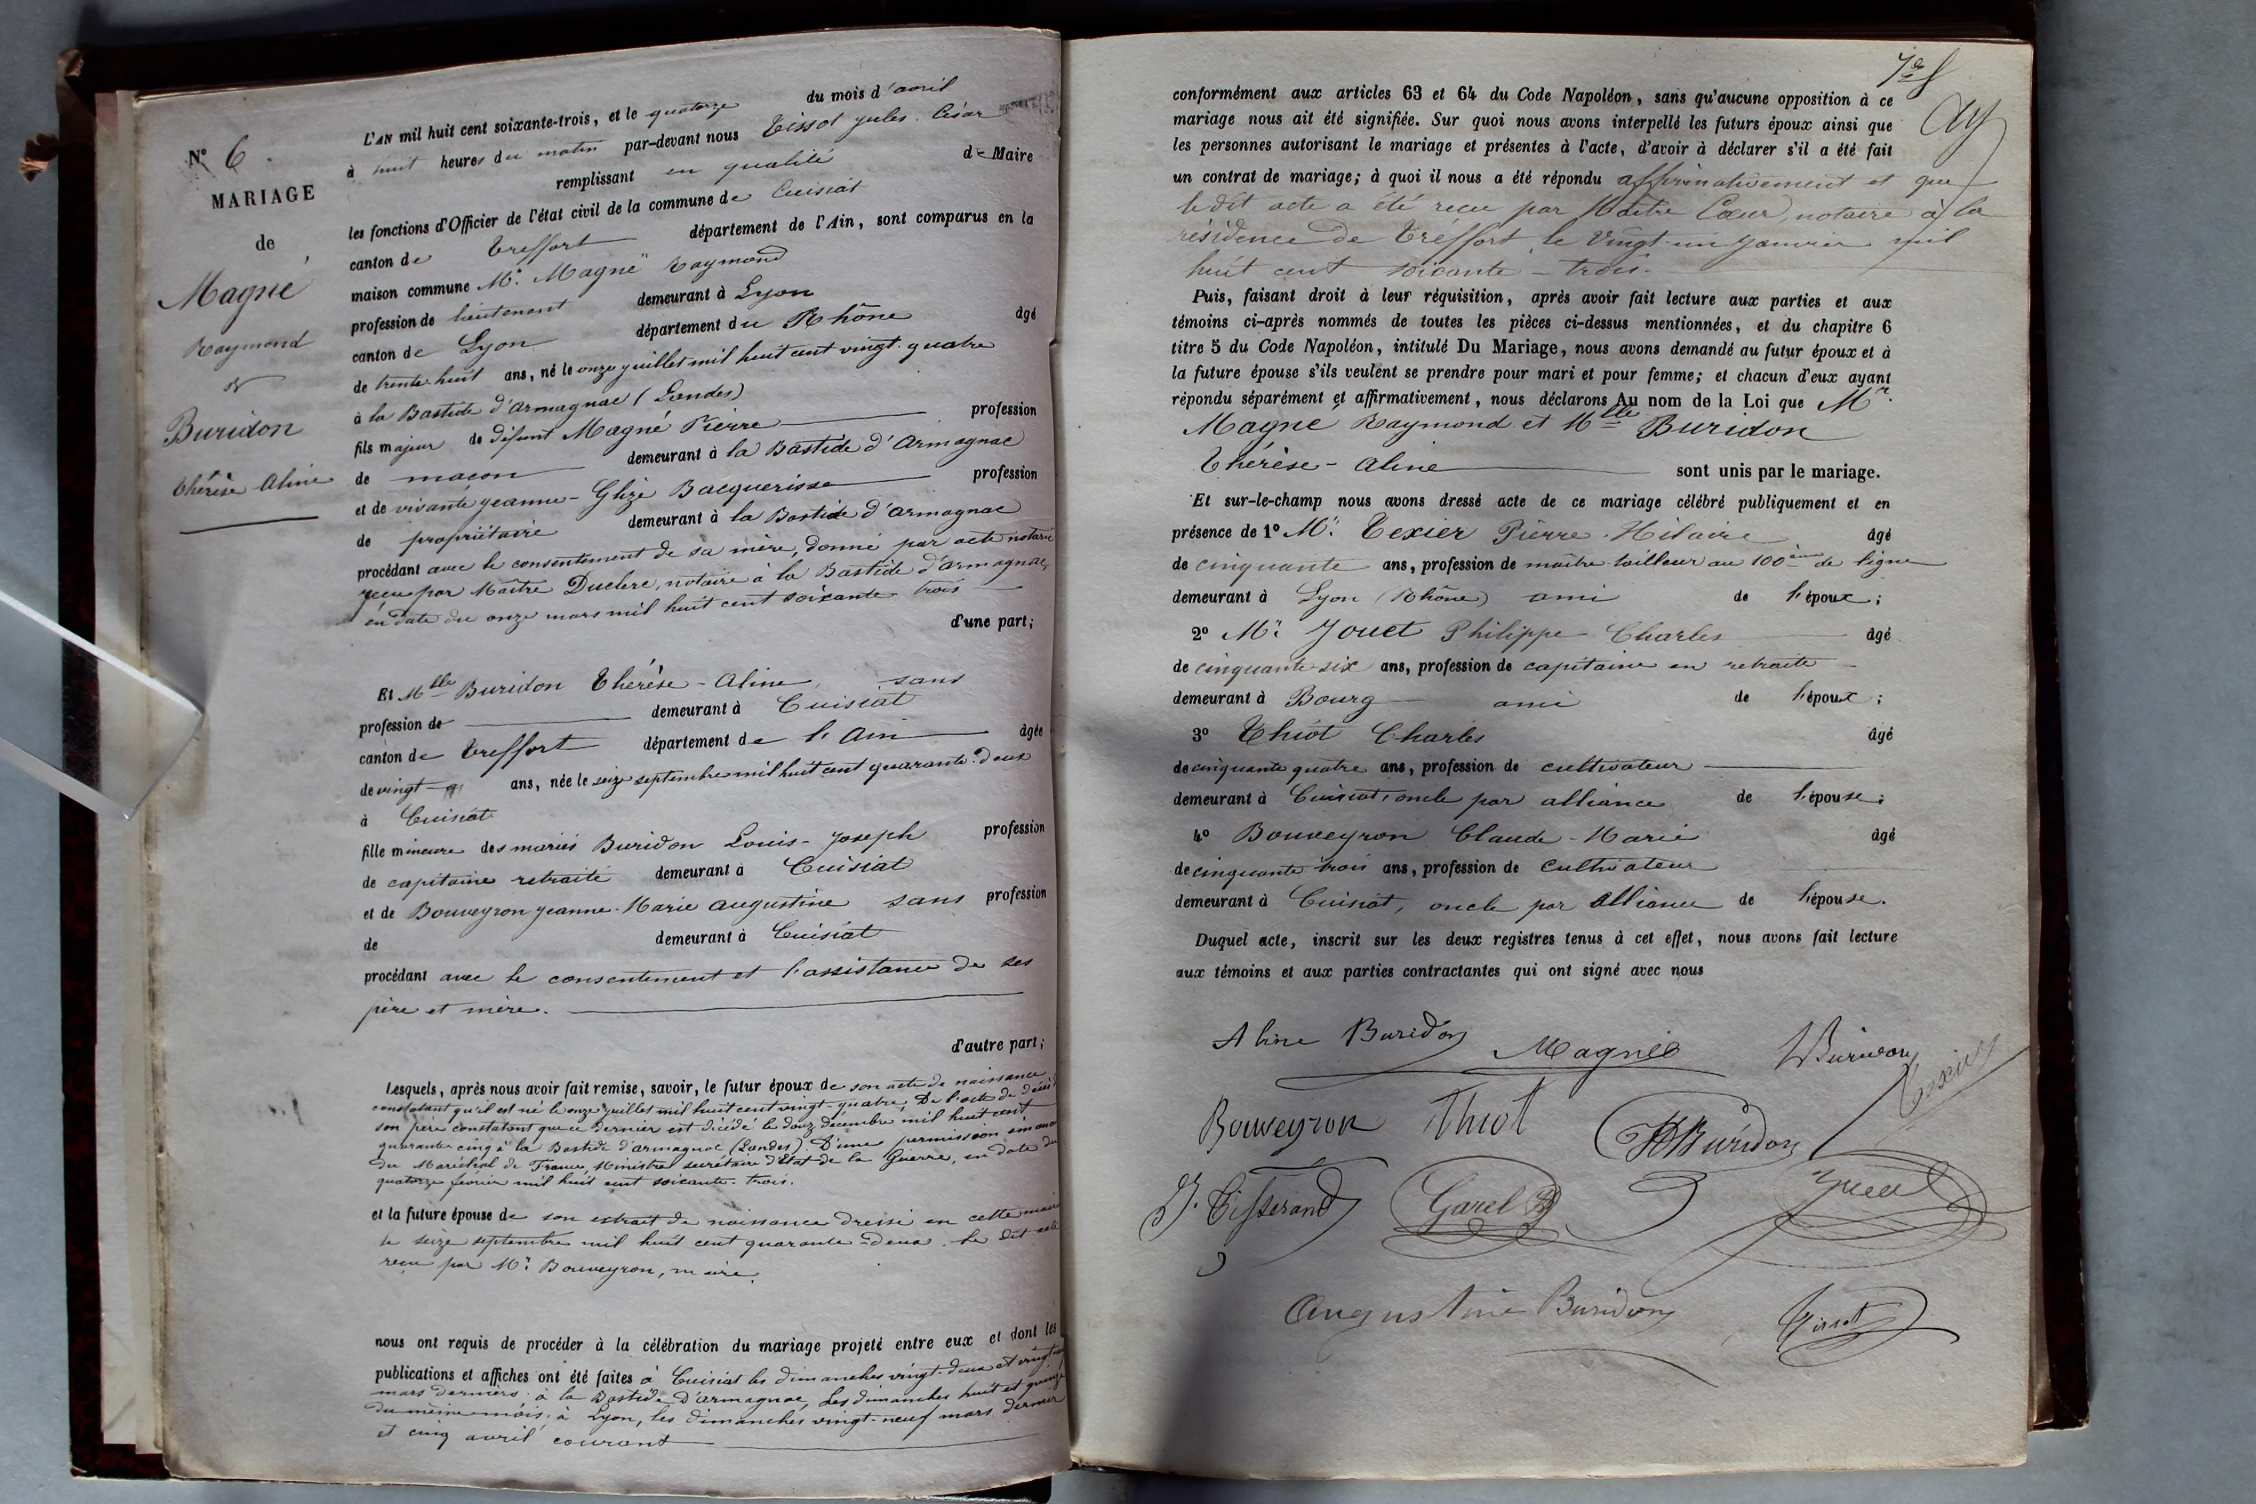 N° 6.
MARIAGE
de
Magné
Raymond
&
Buridon
Thérèse Aline
L'AN mil huit cent soixante-trois, et le quatorze du mois d'avril
à huit heures du matin par-devant nous Tissot Jules César
remplissant en qualité de Maire
les fonctions d'Officier de l'état civil de la commune de Cuisiat
canton de Treffort département de l'Ain, sont comparus en la
maison commune Mr. Magné Raymond
profession de lieutenant demeurant à Lyon
canton de Lyon département du Rhône âgé
de trente-huit ans, né le onze juillet mil huit cent vingt-quatre
à la Bastide d'Armagnac (Landes)
fils majeur de défunt Magné Pierre profession
de maçon demeurant à la Bastide d'Armagnac
et de vivante Jeanne-Glize Bacquerisse profession
de propriétaire demeurant à la Bastide d'Armagnac
procédant avec le consentement de sa mère, donné par acte notarié
reçu par Maître Duclerc, notaire à la Bastide d'Armagnac,
en date du onze mars mil huit cent soixante-trois
d'une part;
Et Mlle Buridon Thérèse-Aline, sans
profession de demeurant à Cuisiat
canton de Treffort département de l'Ain âgée
de vingt ans, née le seize septembre mil huit cent quarante-deux
à Cuisiat
fille mineure des mariés Buridon Louis-Joseph profession
de capitaine retraité demeurant à Cuisiat
et de Bouveyron Jeanne-Marie Augustine sans profession
de demeurant à Cuisiat
procédant avec le consentement et l'assistance de ses
père et mère.
d'autre part;
Lesquels, après nous avoir fait remise, savoir, le futur époux de son acte de naissance
constatant qu'il est né le onze juillet mil huit cent vingt-quatre, De l'acte de décès
son père constatant que ce dernier est décédé le douze décembre mil huit cent
quarante-cinq à la Bastide d'Armagnac (Landes). D'une permission émanée
du Maréchal de France, Ministre secrétaire d'Etat de la Guerre, en date du
quatorze février mil huit cent soixante-trois.
et la future épouse de son extrait de naissance dressé en cette mairie
le seize septembre mil huit cent quarante-deux. le dit acte
reçu par Mr. Bouveyron, maire.
nous ont requis de procéder à la célébration du mariage projeté entre eux et dont les
publications et affiches ont été faites à Cuisiat les dimanches vingt-deux et vingt
mars derniers. à la Bastide d'Armagnac, les dimanches huit et quinze
du même mois. à Lyon, les dimanches vingt-neuf mars dernier
et cinq avril courant
conformément aux articles 63 et 64 du Code Napoléon, sans qu'aucune opposition à ce
mariage nous ait été signifiée. Sur quoi nous avons interpellé les futurs époux ainsi que
les personnes autorisant le mariage et présentes à l'acte, d'avoir à déclarer s'il a été fait
un contrat de mariage; à quoi il nous a été répondu affirmativement et que
le dit acte a été reçu par Maître Cœur, notaire à la
résidence de Treffort, le vingt-un janvier mil
huit cent soixante-trois.
Puis, faisant droit à leur réquisition, après avoir fait lecture aux parties et aux
témoins ci-après nommés de toutes les pièces ci-dessus mentionnées, et du chapitre 6
titre 5 du Code Napoléon, intitulé Du Mariage, nous avons demandé au futur époux et à
la future épouse s'ils veulent se prendre pour mari et pour femme; et chacun d'eux ayant
répondu séparément et affirmativement, nous déclarons Au nom de la Loi que Mr.
Magné Raymond et Mlle Buridon
Thérèse-Aline sont unis par le mariage.
Et sur-le-champ nous avons dressé acte de ce mariage célébré publiquement et en
présence de 1° Mr. Texier Pierre-Hilaire âgé
de cinquante ans, profession de maître tailleur au 100ème de ligne
demeurant à Lyon (Rhône) ami de l'époux;
2° Mr. Jouet Philippe-Charles âgé
de cinquante-six ans, profession de capitaine en retraite
demeurant à Bourg ami de l'époux;
3° Thiot Charles âgé
de cinquante-quatre ans, profession de cultivateur
demeurant à Cuisiat, oncle par alliance de l'épouse;
4° Bouveyron Claude-Marie âgé
de cinquante-trois ans, profession de cultivateur
demeurant à Cuisiat, oncle par alliance de l'épouse.
Duquel acte, inscrit sur les deux registres tenus à cet effet, nous avons fait lecture
aux témoins et aux parties contractantes qui ont signé avec nous
Aline Buridon Magné Buridon
Texier
Bouveyron Thiot Buridon
Tisserand Garel Jouet
Augustine Buridon Tissot